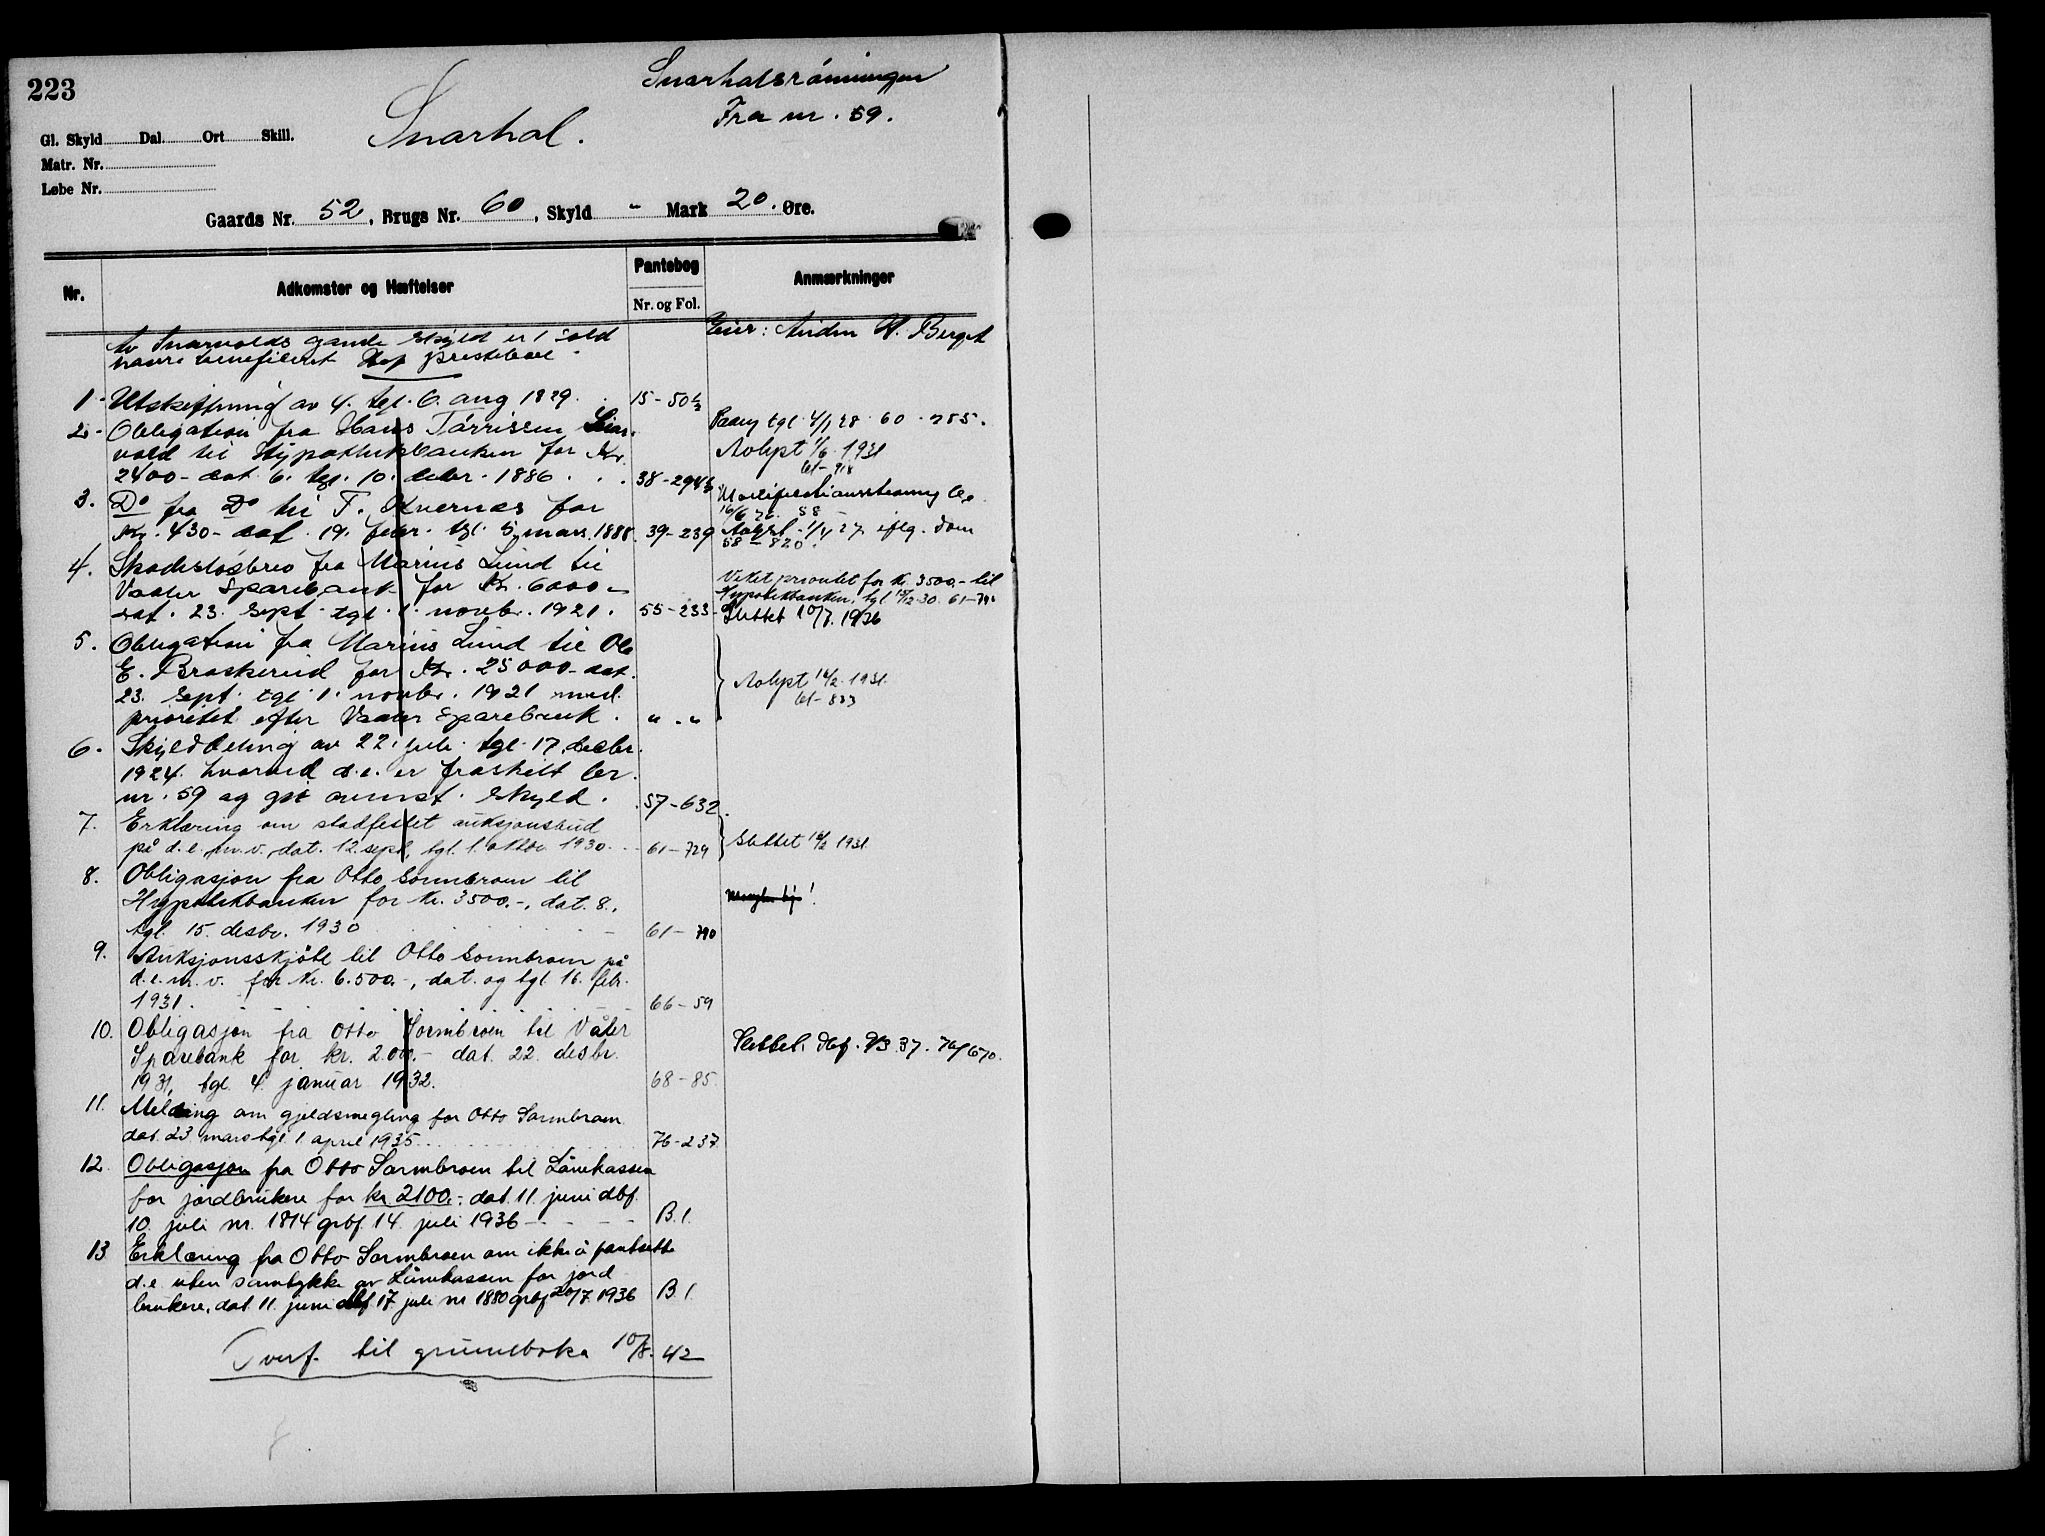 223
Snarholsrönningen
Fra nr. 59.
Snarhol.
Gl. Skyld Dal. Ort Skill.
Matr. Nr.
Løbe Nr.
Gaards Nr. 52, Brugs Nr. 60, Skyld " Mark 20. Øre.
Nr. Adkomster og Hæftelser Pantebog Nr. og Fol. Anmærkninger
Av Snarvolds gamle skyld er 1 sold
havre benefileret Hof prestebol
Eier: H. Berget
1. Utskiftning av 4. tgl. 6. aug 1829. 15-50
2. Obligation fra Hans Törrisen
vold til Hypothekbanken for Kr.
2400- dat. 6. tgl. 10. decbr. 1886 . . . 38-294
tgl 4/1 28. 60.
Avlyst 1/6 1931
3. Do fra Do til T. Kvernes for
Kr. 430- dat. 19. febr. tgl. 5. mars 1888. 39-239
58
Avlyst 27 iflg. dom
58-820.
4. Skadesløsbrev fra Marius Lund til
Vaaler Sparebank for Kr. 6000-
dat. 23. sept. tgl. 1. novbr. 1921. 55-233
Veket prioritet for kr. 3500.- til
Hypotekbanken, tgl 15/12 30. 61-790
Slettet 10/7. 1936
5. Obligation fra Marius Lund til Ole
E. Braskerud for Kr. 25000- dat.
23. sept. tgl. 1. novbr. 1921 med
prioritet efter Vaaler Sparebank. " - "
Avlyst 16/2. 1931.
61-833
6. Skylddeling av 22. juli tgl. 17. decbr.
1924. hvorved d.e. er fraskilt br.
nr. 59 og git anmst. skyld. 57-632.
7. Erklæring om stadfestet auksjonsbud
på d.e. m.v. dat. 12. sept, tgl. 1. oktbr 1930. 61-729
Slettet 16/2 1931.
8. Obligasjon fra Otto Sormbroen til
Hypotekbanken for kr. 3500.-, dat. 8.,
tgl. 15. desbr. 1930 61-790
9. Auksjonsskjöte til Otto Sormbroen på
d.e. m.v. for kr. 6.500.-, dat. og tgl 16. febr.
1931. 66-59
10. Obligasjon fra Otto Sormbroen til Våler
Sparebank for kr. 2.000.- dat. 22. desbr.
1931, tgl. 4. januar 1932. 68-85.
Slettet. dbf. 37. 76/670.
11. Melding om gjeldsmegling for Otto Sormbroen
dat. 23 mars tgl. 1. april 1935. 76-237
12. Obligasjon fra Otto Sormbroen til Lånekassen
for jordbrukere for kr. 2100.- dat. 11. juni dbf.
10. juli nr. 1814 grbf. 14. juli 1936 - - - - B.1.
13 Erklæring fra Otto Sormbroen om ikke å pantsette
d.e. uten samtykke av Lånekassen for jord
brukere, dat. 11. juni dbf 17 juli nr 1880 grbf 20/7 1936 B.1.
Overf. til grunnboka 10/8. 42